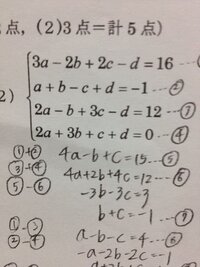 点, (2)3点=計5点)
3a−2b+2c−d=16 …
a+b−c+d=−1 …②
2) 2a−b+3c−d=12 …③
2a+3b+c+d=0 …④
①+② 4a−b+c=15…⑤
③+④ 4a+2b+4c=12…⑥
⑤−⑥ −3b−3c=3
b+c=−1…⑦
①−③ a−b−c=4…⑧
②−④ −a−2b−2c=−1